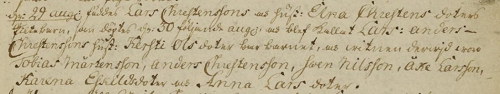 d. 29 aug. föddes Lars Christenssons och hust: Elna Christens doters
barn, som döptes d. 30 följande aug. och blef kallat Lars: anders
Christenssons hust. Kersti Ols doter bar barnet, och witnen deribland
Tobias Mårtensson, anders Christensson, Swen Nilsson, Åke Larsson,
Karena Eskilsdoter och Anna Lars doter.